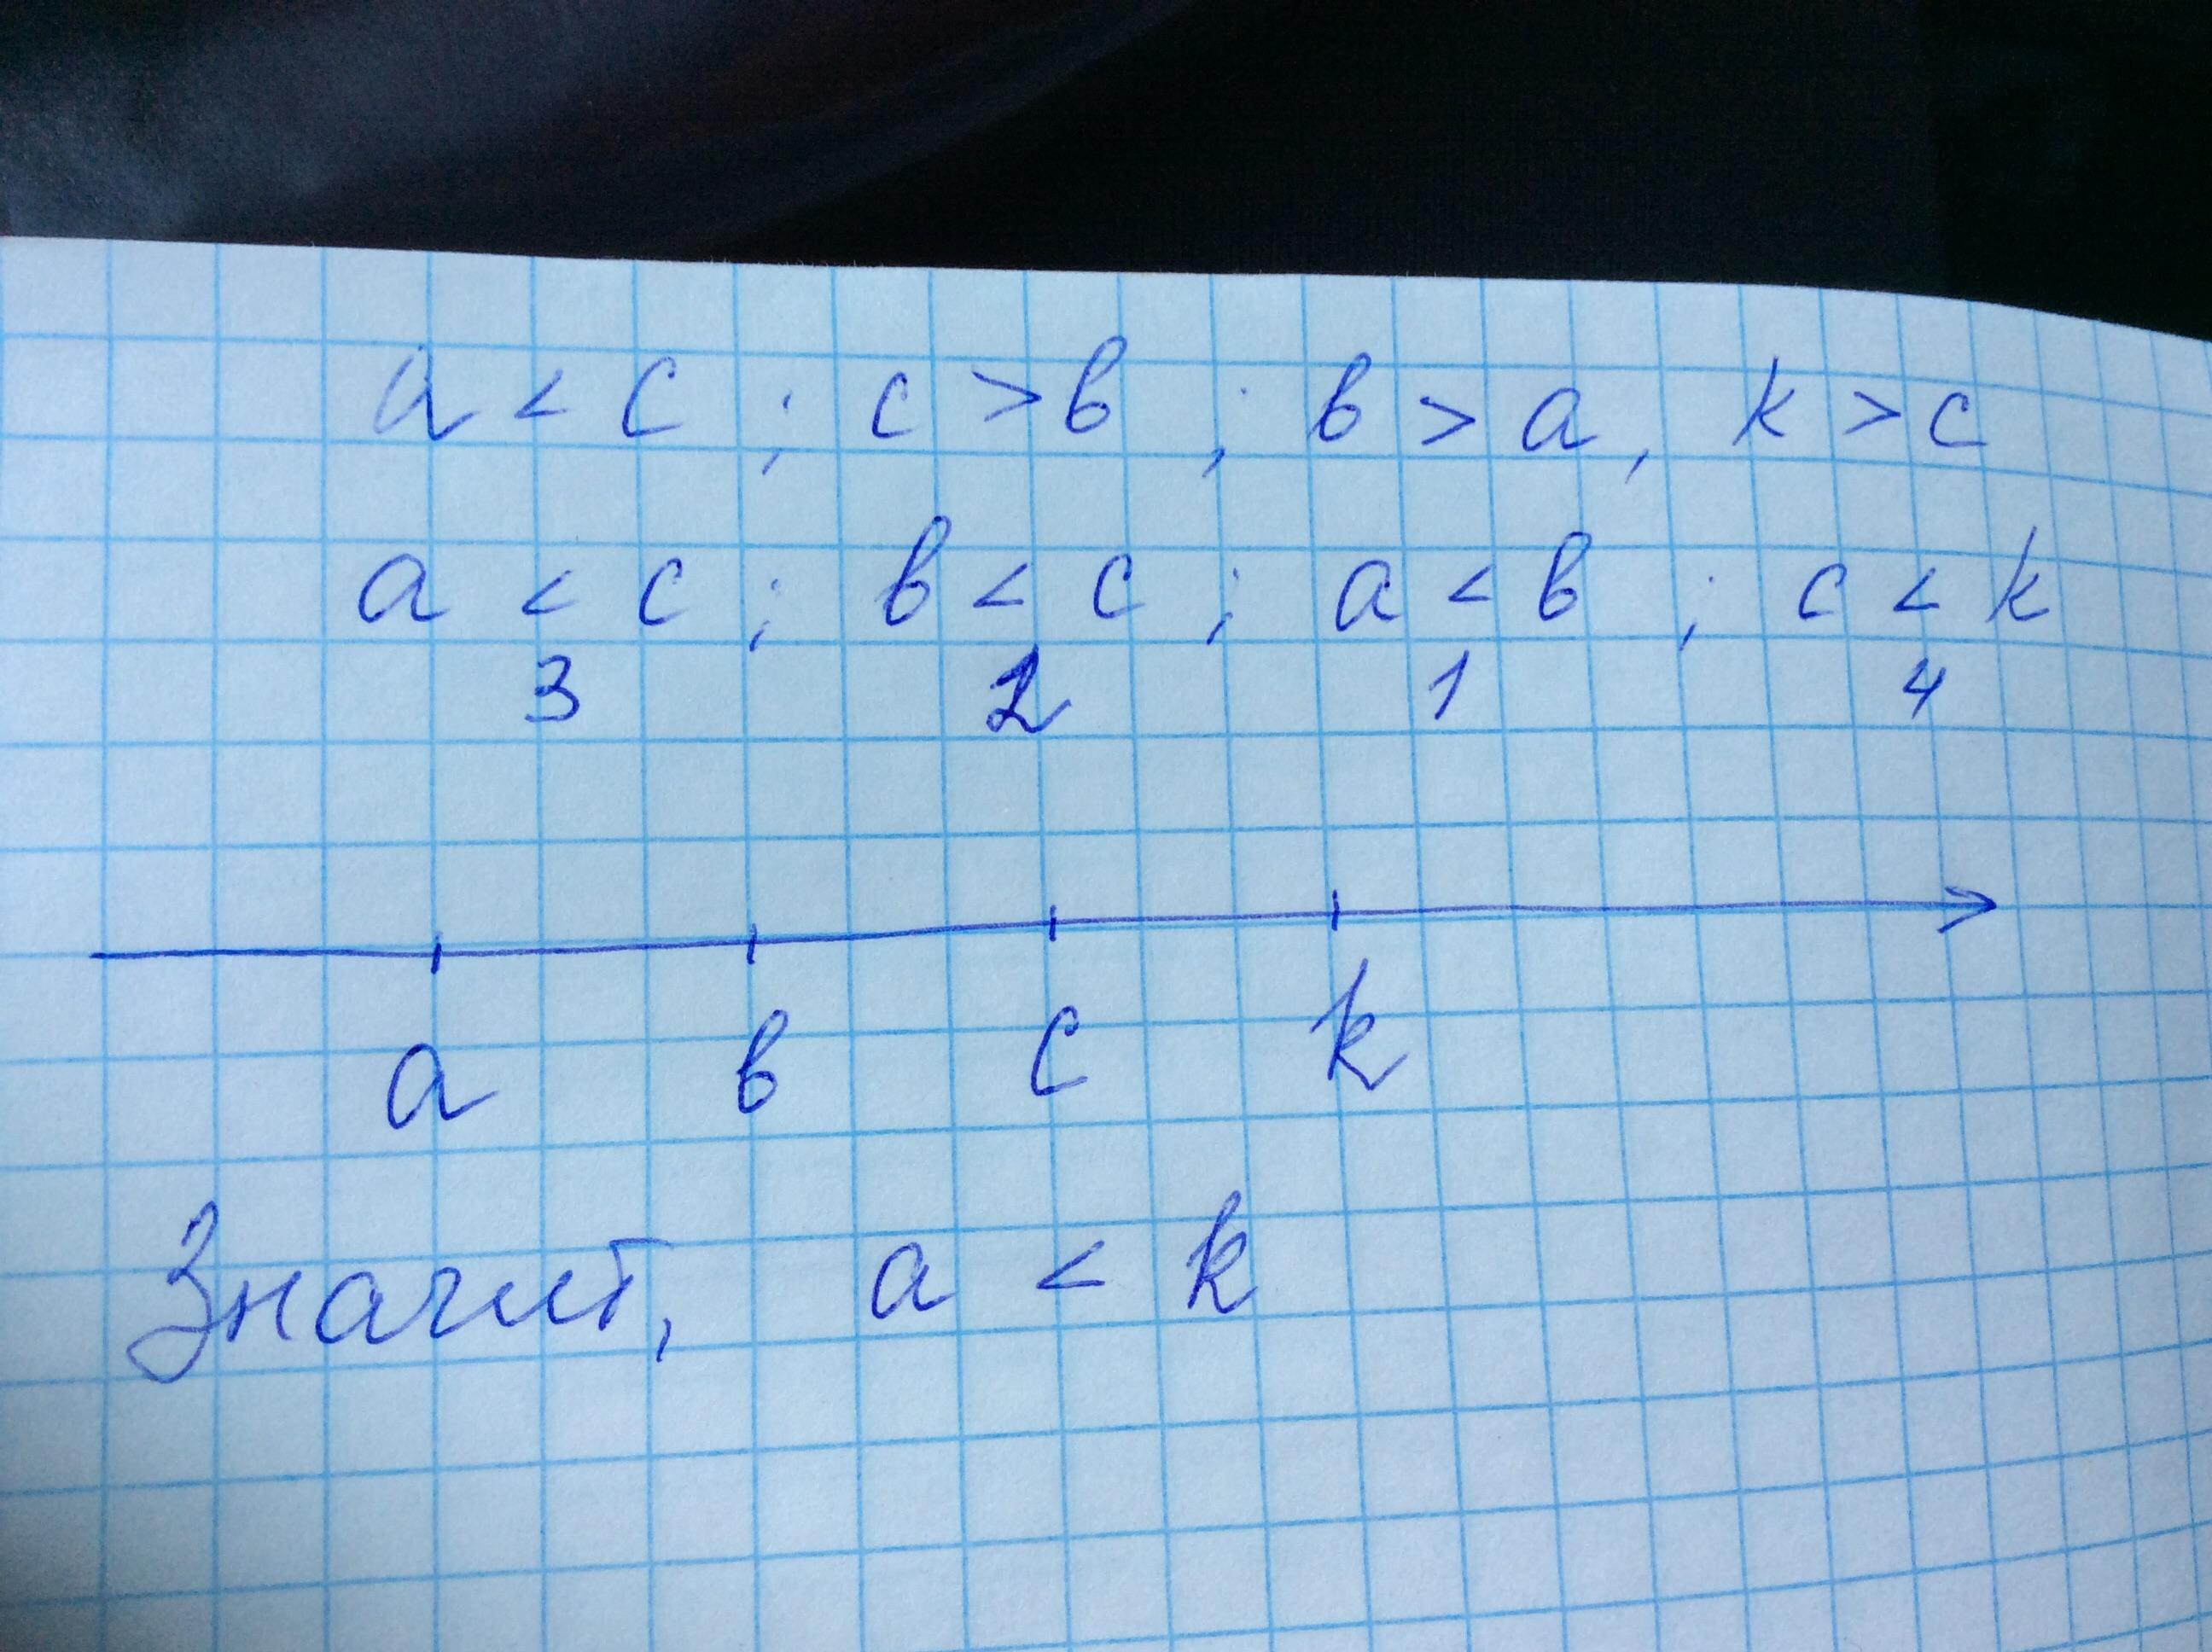 a < c ; c > в ; в > a, k > c
a < c ; в < c ; a < в ; c < k
3 2 1 4
a в c k
Значит, a < k